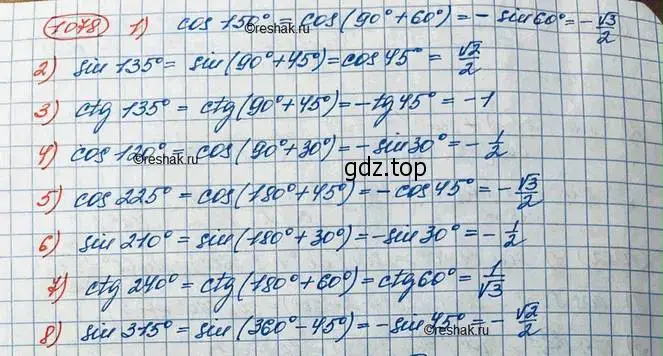 1078 1) cos 150° = cos(90°+60°) = - sin 60° = - √3/2
2) sin 135° = sin(90°+45°) = cos 45° = √2/2
3) ctg 135° = ctg(90°+45°) = -tg 45° = -1
4) cos 120° = cos(90°+30°) = -sin 30° = - 1/2
5) cos 225° = cos(180°+45°) = - cos 45° = - √3/2
6) sin 210° = sin(180°+30°) = -sin 30° = - 1/2
7) ctg 240° = ctg(180°+60°) = ctg 60° = 1/√3
8) sin 315° = sin(360°-45°) = -sin 45° = - √2/2
©reshak.ru
©reshak.ru
gdz.top
©reshak.ru
©reshak.ru